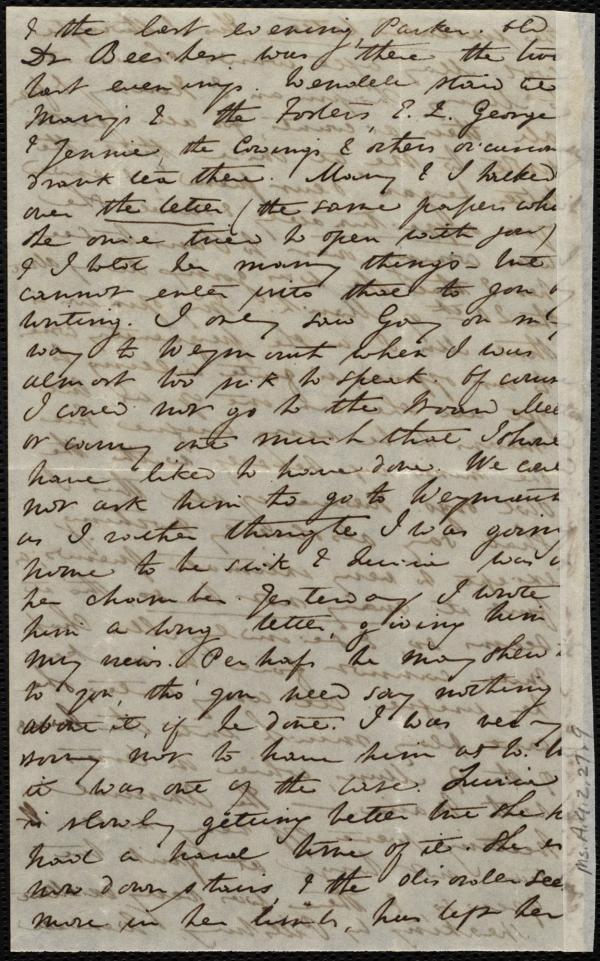 & the last evening, Parker. Old
Dr Beecher was there the two
last evenings. Wendell staid at
Mary's & the Fosters, E. Q. George
& Jennie, the Cowings & others
drank tea there. Mary & I talked
over the letter (the same papers
she once tried to open with you)
& I told her many things - but
cannot enter into that to you
writing. I only saw Gay on my
way to Weymouth when I was
almost too sick to speak. Of
I could not go to the Board
or carry out much that I
have liked to have done. We
not ask him to go to Weymouth
as I rather thought I was going
home to be sick & Lucia was
her chamber. Yesterday I wrote
him a long letter, giving him
my news. Perhaps he may shew
to you, tho' you need say nothing
about it, if he dont. I was very
sorry not to have him at
it was one of the case. Lucia
is slowly getting better but she
had a hard time of it. She is
now down stairs, & the disorder
more in her limbs, has left her
Ms. A. 9. 2. 27. 9